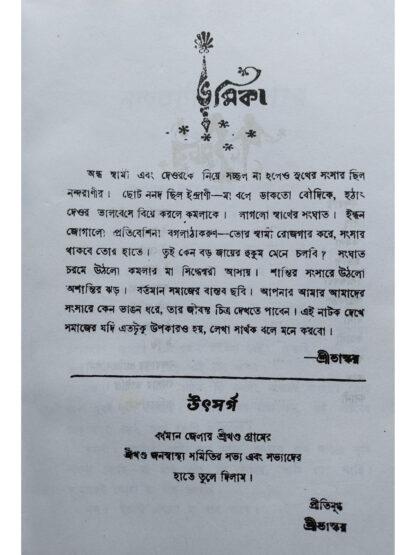 ভূমিকা
অন্ধ স্বামী এবং দেওরকে নিয়ে সচ্ছল না হলেও সুখের সংসার ছিল
নন্দরাণীর। ছোট ননদ ছিল ইন্দ্রাণী—মা বলে ডাকতো বৌদিকে, হঠাৎ
দেওর ভালবেসে বিয়ে করলে কমলাকে। লাগলো স্বার্থের সংঘাত। ইন্ধন
জোগালো প্রতিবেশিনী বগলাঠাকরুণ—তোর স্বামী রোজগার করে, সংসার
থাকবে তোর হাতে। তুই কেন বড় জায়ের হুকুম মেনে চলবি? সংঘাত
চরমে উঠলো কমলার মা সিদ্ধেশ্বরী আসায়। শান্তির সংসারে উঠলো
অশান্তির ঝড়। বর্তমান সমাজের বাস্তব ছবি। আপনার আমার আমাদের
সংসারে কেন ভাঙন ধরে, তার জীবন্ত চিত্র দেখতে পাবেন। এই নাটক দেখে
সমাজের যদি এতটুকু উপকারও হয়, লেখা সার্থক বলে মনে করবো।
—শ্রীভাস্কর
উৎসর্গ
বর্ধমান জেলার শ্রীখণ্ড গ্রামের
শ্রীখণ্ড জনস্বাস্থ্য সমিতির সভ্য এবং সভ্যাদের
হাতে তুলে দিলাম।
প্রীতিমুগ্ধ
শ্রীভাস্কর